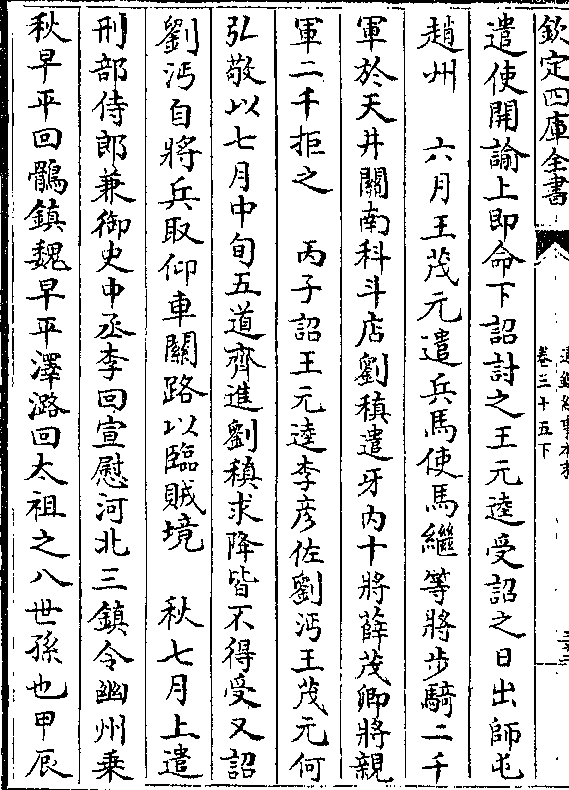 欽定四庫全書
卷三十五下
遣使開諭上即命下詔討之王元逵受詔之日出師屯
趙州　六月王茂元遣兵馬使馬繼等將步騎二千
軍於天井關南科斗店劉稹遣牙內十將薛茂卿將親
軍二千拒之　丙子詔王元逵李彥佐劉沔王茂元何
弘敬以七月中旬五道齊進劉稹求降皆不得受又詔
劉沔自將兵取仰車關路以臨賊境　秋七月上遣
刑部侍郎兼御史中丞李回宣慰河北三鎮令幽州乗
秋早平回鶻鎮魏早平澤潞回太祖之八世孫也甲辰